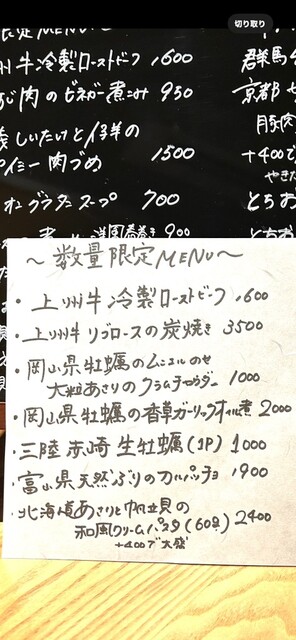 切り取り
定MENU
州牛冷製ローストビーフ 1600
肉のビネガー煮込み 950
しいたけと
イミー肉づめ 1500
オニオングラタンスープ 700
900
群馬
京都
豚肉
+400で
やきた
とちお
とちお
～数量限定MENU～
・上州牛 冷製ローストビーフ 1600
・上州牛リブロースの炭焼き 3500
・岡山県牡蠣のムニエルのせ
大粒あさりのクラムチャウダー 1000
・岡山県牡蠣の香草ガーリックオイル煮 2000
・三陸 赤崎 生牡蠣(1P) 1000
・富山県天然ぶりのカルパッチョ 1900
・北海道あさりと帆立貝の
和風クリームパスタ(60g) 2400
+400で大盛